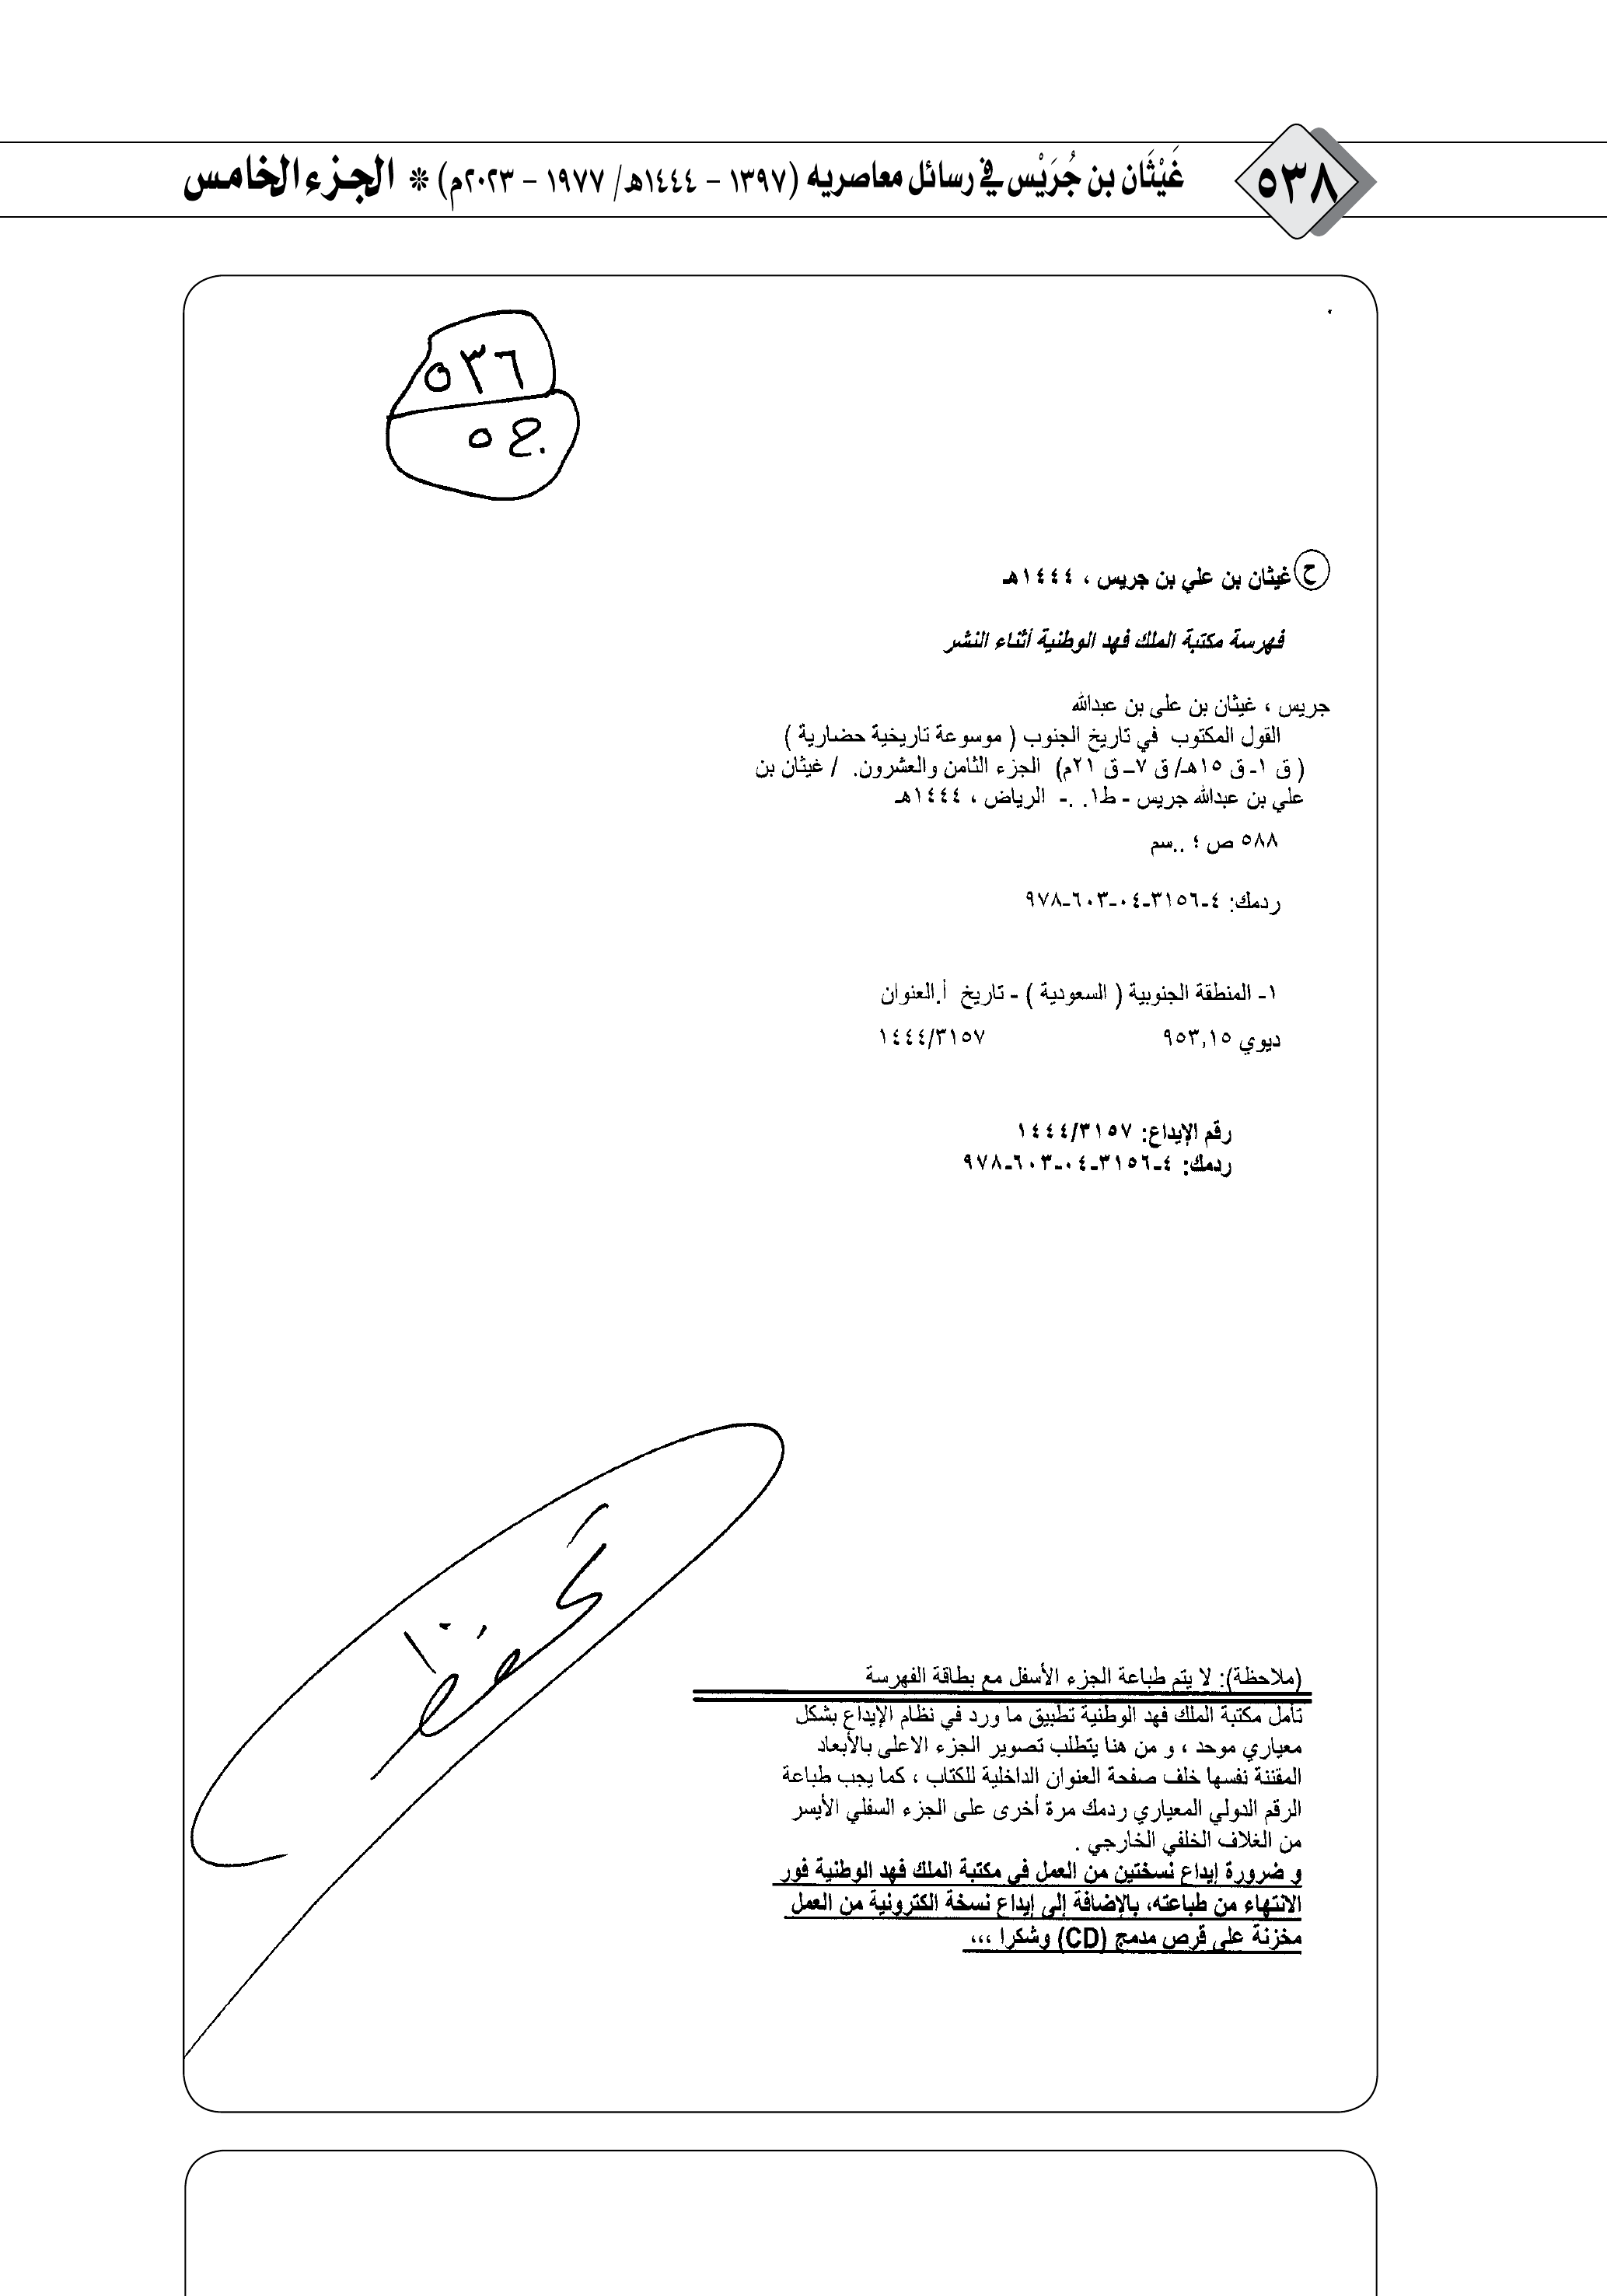 ٥٣٨
غَيْثَان بن جُرَيْس في رسائل معاصريه (١٣٩٧ – ١٤٤٤هـ/ ١٩٧٧ – ٢٠٢٣م) * الجزء الخامس
٥٣٦
ج ٥
ح غيثان بن علي بن جريس ، ١٤٤٤هـ
فهرسة مكتبة الملك فهد الوطنية أثناء النشر
جريس ، غيثان بن علي بن عبدالله
القول المكتوب في تاريخ الجنوب ( موسوعة تاريخية حضارية )
( ق ١- ق ١٥هـ/ ق ٧– ق ٢١م) الجزء الثامن والعشرون. / غيثان بن
علي بن عبدالله جريس - ط١. .- الرياض ، ١٤٤٤هـ
٥٨٨ ص ؛ ..سم
ردمك: ٤-٣١٥٦-٠٤-٦٠٣-٩٧٨
١- المنطقة الجنوبية ( السعودية ) - تاريخ أ.العنوان
ديوي ٩٥٣,١٥ ١٤٤٤/٣١٥٧
رقم الإيداع: ١٤٤٤/٣١٥٧
ردمك: ٤-٣١٥٦-٠٤-٦٠٣-٩٧٨
(ملاحظة): لا يتم طباعة الجزء الأسفل مع بطاقة الفهرسة
تأمل مكتبة الملك فهد الوطنية تطبيق ما ورد في نظام الإيداع بشكل
معياري موحد ، و من هنا يتطلب تصوير الجزء الاعلى بالأبعاد
المقننة نفسها خلف صفحة العنوان الداخلية للكتاب ، كما يجب طباعة
الرقم الدولي المعياري ردمك مرة أخرى على الجزء السفلي الأيسر
من الغلاف الخلفي الخارجي .
و ضرورة إيداع نسختين من العمل في مكتبة الملك فهد الوطنية فور
الانتهاء من طباعته، بالإضافة إلى إيداع نسخة الكترونية من العمل
مخزنة على قرص مدمج (CD) وشكرا ،،،